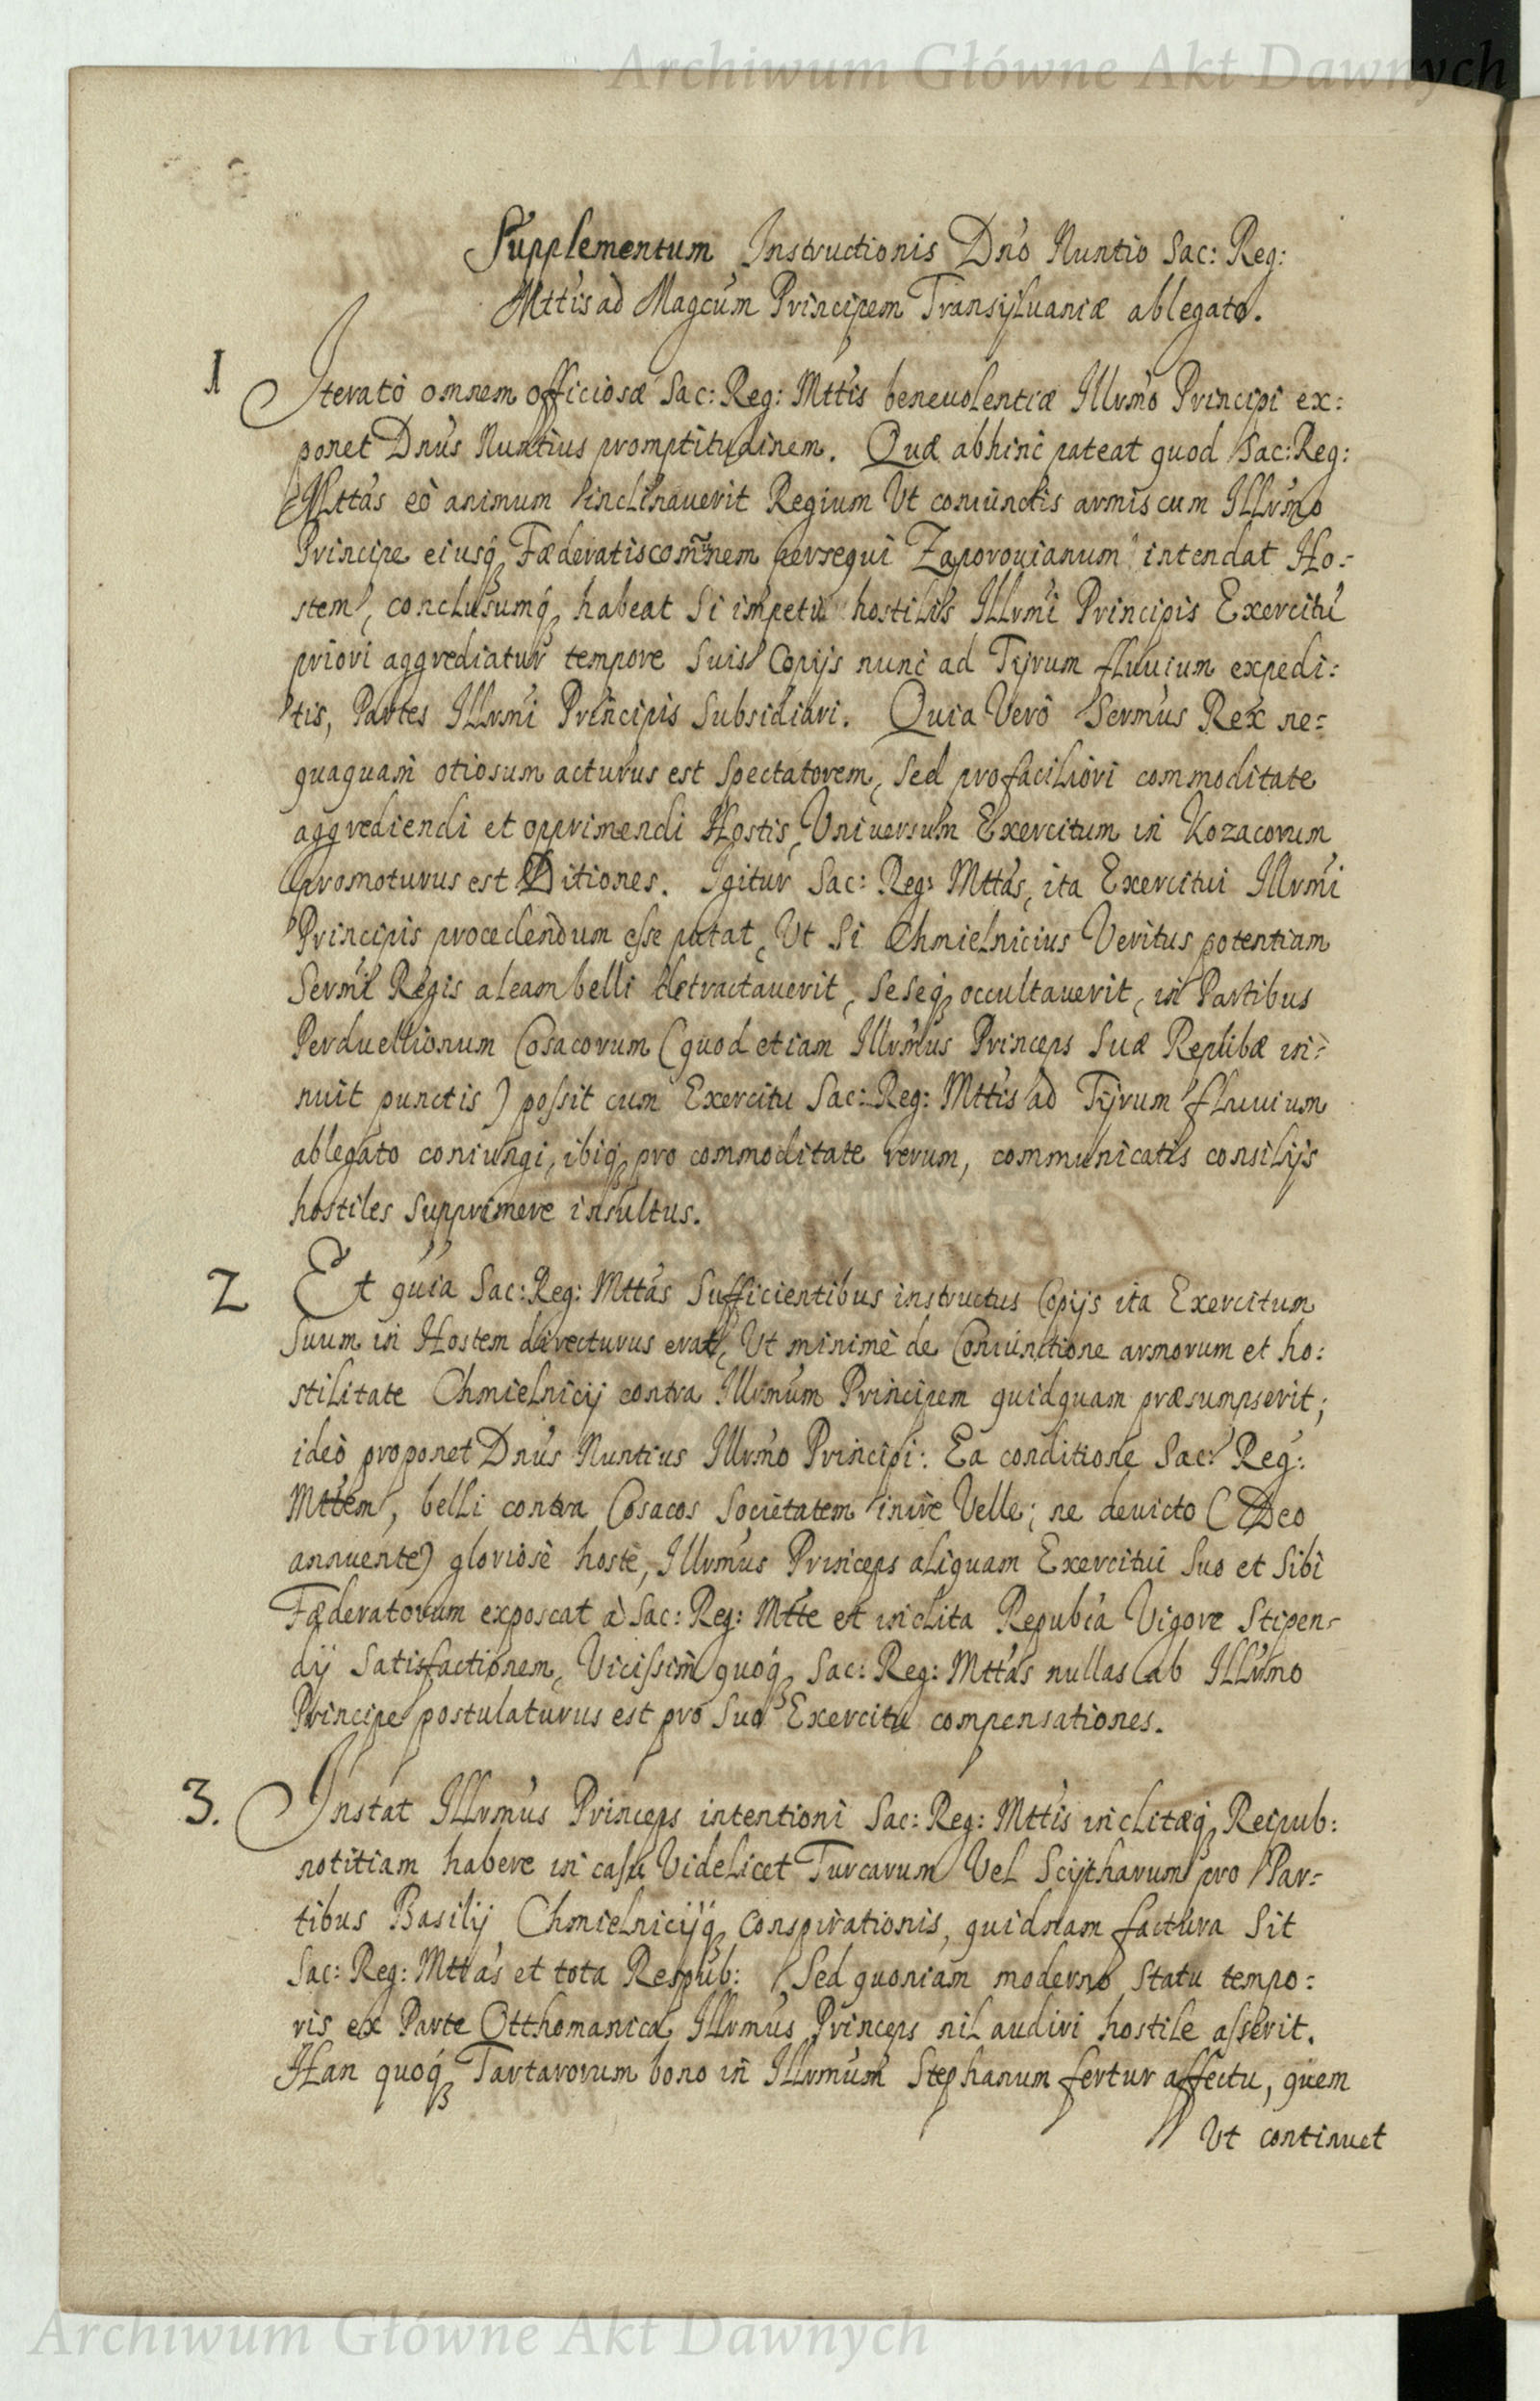 Archiwum Główne Akt Dawnych
Supplementum Instructionis Dno Nuntio Sac: Reg:
Mttis ad Magcum Principem Transÿluaniæ ablegato.
1 Iterato omnem officiosæ Sac: Reg: Mttis beneuolentiæ Illrmo Principi ex:
ponet Dnus Nuntius promptitudinem. Quæ abhinc pateat quod Sac: Reg:
Mttas eò animum inclinauerit Regium Vt coniunctis armis cum Illrmo
Principe eiusq3 Fæderatis com̃nem persequi Zaporouianum intendat Ho-
stem, conclusumq3 habeat Si impetu hostilis Illrmi Principis Exercitu
priori aggrediatur tempore Suis Copijs nunc ad Tÿrum fluuium expedi:
tis, Partes Illrmi Principis Subsidiari. Quia Verò Sermus Rex ne=
quaquam otiosum acturus est Spectatorem, Sed pro faciliori commoditate
aggrediendi et opprimendi Hostis, Uniuersum Exercitum in Kozacorum
promoturus est Ditiones. Igitur Sac: Reg: Mttas, ita Exercitui Illrmi
Principis procedendum esse putat, Vt Si Chmielnicius Veritus potentiam
Sermi Regis aleam belli detractauerit, Seseq3 occultauerit, in Partibus
Perduellionum Cosacorum (quod etiam Illrmus Princeps Suæ Replibæ in=
nuit punctis) possit cum Exercitu Sac: Reg: Mttis ad Tÿrum fluuium
ablegato coniungi, ibiq3 pro commoditate rerum, communicatis consilijs
hostiles Supprimere insultus.
2 Et quia Sac: Reg: Mttas Sufficientibus instructus Copijs ita Exercitum
Suum in Hostem directurus erat, Vt minimè de Coniunctione armorum et ho:
stilitate Chmielnicij contra Illrmum Principem quidquam præsumpserit;
ideò proponet Dnus Nuntius Illrmo Principi: Ea conditione Sac: Reg:
Mttem, belli contra Cosacos Societatem inire Velle; ne deuicto (Deo
annuente) gloriosè hoste, Illrmus Princeps aliquam Exercitui Suo et Sibi
Fæderatorum exposcat à Sac: Reg: Mtte et inclita Repubca Vigore Stipen-
dij Satisfactionem, Vicissim quoq3 Sac: Reg: Mttas nullas ab Illrmo
Principe postulaturus est pro Suo Exercitu compensationes.
3. Instat Illrmus Princeps intentioni Sac: Reg: Mttis inclitæq3 Reipub:
notitiam habere in casu Videlicet Turcarum Vel Scÿtharum pro Par-
tibus Basilij Chmielnicijq3 Conspirationis, quidnam factura Sit
Sac: Reg: Mttas et tota Respub: Sed quoniam moderno Statu tempo:
ris ex Parte Otthomanica Illrmus Princeps nil audiri hostile asserit.
Han quoq3 Tartarorum bono in Illrmum Stephanum fertur affectu, quem
Vt continuet
Archiwum Główne Akt Dawnych